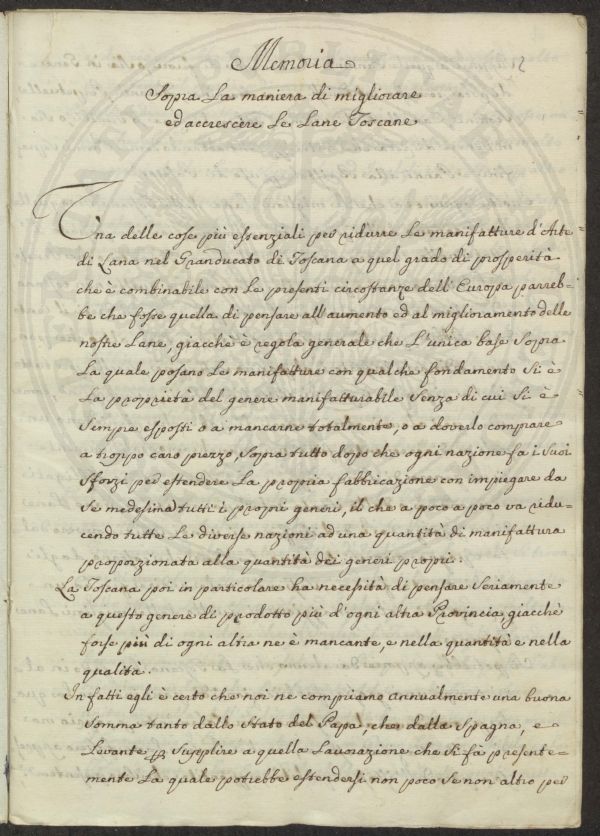 Memoria
12
Sopra La maniera di migliorare
ed accrescere Le Lane Toscane
Una delle cose più essenziali per ridurre Le manifatture d'Arte
di Lana nel Granducato di Toscana a quel grado di prosperità
che è combinabile con Le presenti circostanze dell'Europa parreb=
be che fosse quella di pensare all'aumento ed al miglioramento delle
nostre Lane, giacchè è regola generale che L'unica base Sopra
La quale posano Le manifatture con qualche fondamento Si è
La proprietà del genere manifatturabile Senza di cui Si è
Sempre esposti o a mancarne totalmente, o a doverlo comprare
a troppo caro prezzo, Sopra tutto dopo che ogni nazione fa i Suoi
Sforzi per estendere La propria fabbricazione con impiegare da
Se medesima tutti i propri generi, il che a poco a poco va ridu=
cendo tutte Le diverse nazioni ad una quantità di manifattura
proporzionata alla quantità dei generi proprii.
La Toscana poi in particolare ha necessità di pensare Seriamente
a questo genere di prodotto più d'ogni altra Provincia, giacchè
forse più di ogni altra ne è mancante, e nella quantità e nella
qualità.
In fatti egli è certo che noi ne compriamo annualmente una buona
Somma tanto dallo Stato del Papa, che dalla Spagna, e
Levante p Supplire a quella Lavorazione che Si fà presente=
mente La quale potrebbe estendersi non poco Se non altro per